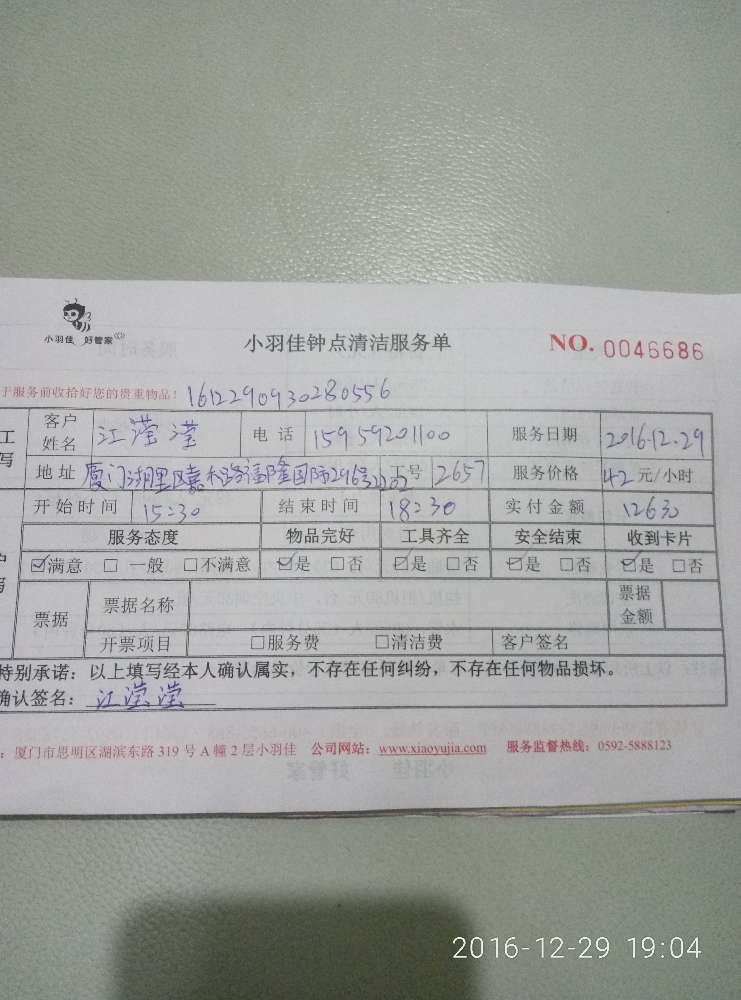 小羽佳 好管家
小羽佳钟点清洁服务单
NO. 0046686
于服务前收拾好您的贵重物品！ 1612290930280556
工 客户姓名 江滢滢 电话 15959201100 服务日期 2016.12.29
写 地址 厦门湖里区嘉禾路福隆国际296号2202 工号 2657 服务价格 42 元/小时
开始时间 15:30 结束时间 18:30 实付金额 126元
服务态度 物品完好 工具齐全 安全结束 收到卡片
☑满意 □ 一般 □不满意 ☑是 □否 ☑是 □否 ☑是 □否 ☑是 □否
票据 票据名称 票据金额
开票项目 □服务费 □清洁费 客户签名
特别承诺：以上填写经本人确认属实，不存在任何纠纷，不存在任何物品损坏。
确认签名：江滢滢
：厦门市思明区湖滨东路 319 号 A 幢 2 层小羽佳 公司网站：www.xiaoyujia.com 服务监督热线：0592-5888123
2016-12-29 19:04